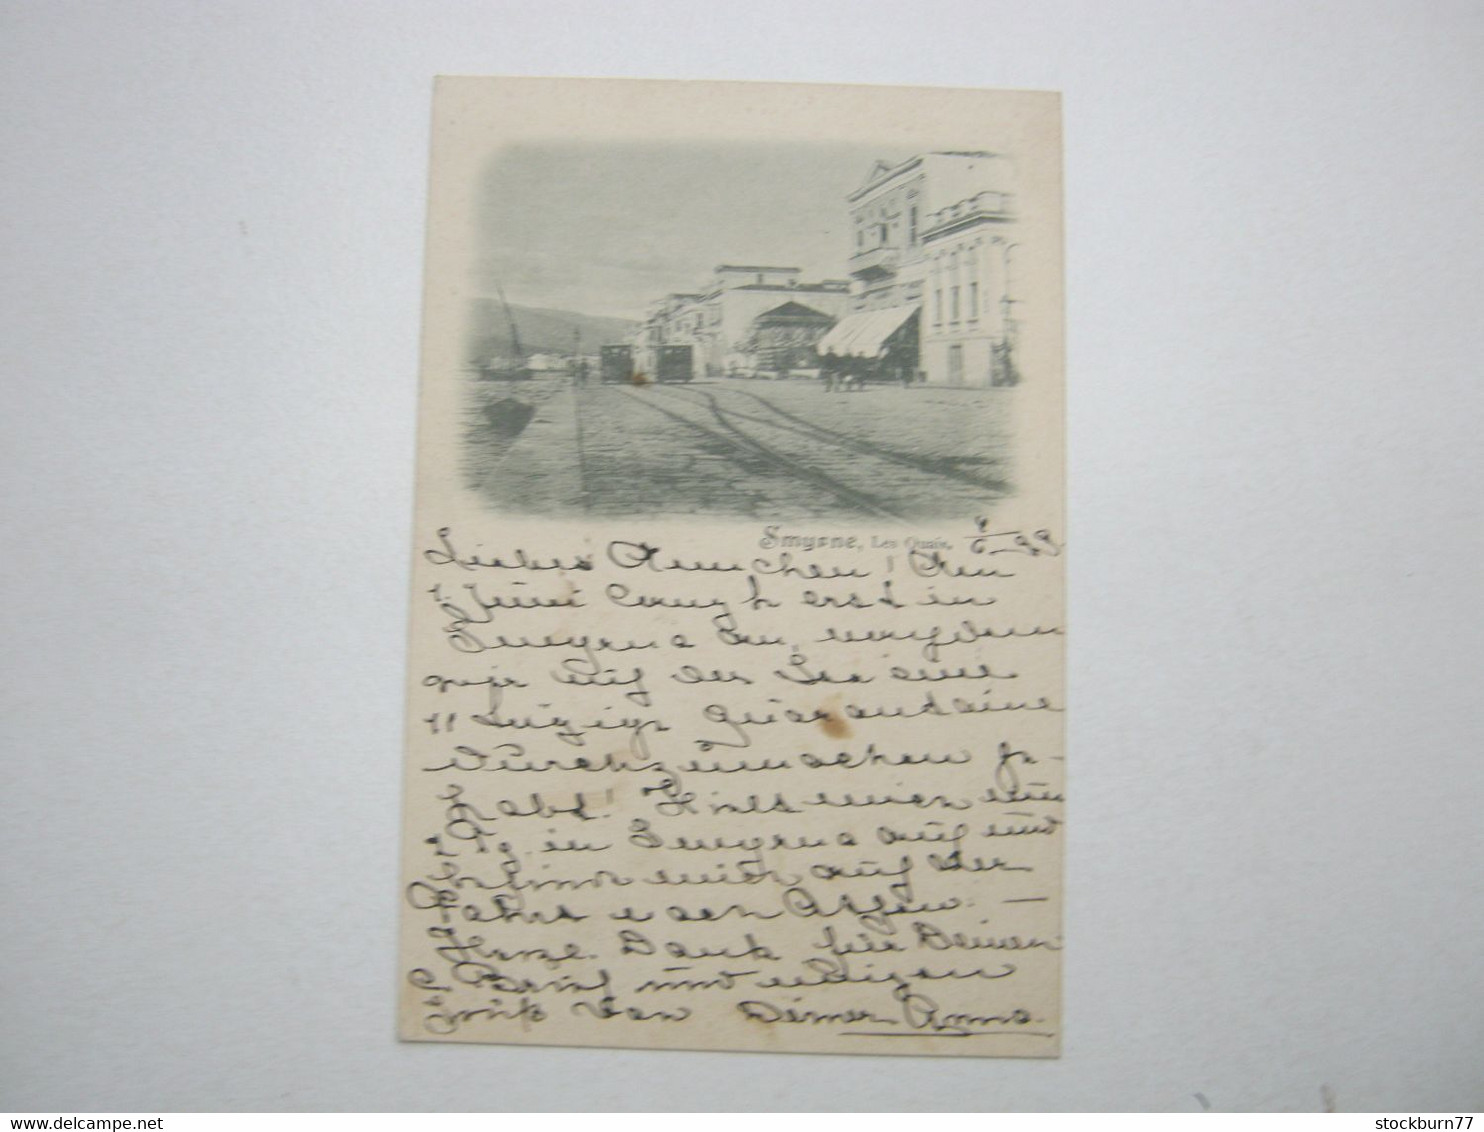 Smyrne, Les Quais. 4/6 99
Liebes Aennchen! Am
Juni langte erst in
Smyrna an, nachdem
wir auf der See eine
11 tägige Quarantaine
durchzumachen ge-
habt! Hielt mich nun
in Smyrna auf und
befinde mich auf der
Fahrt nach Athen. —
Herzl. Dank für Deinen
Brief und innigen
Gruß von Deiner Anna.
delcampe.net
stockburn77